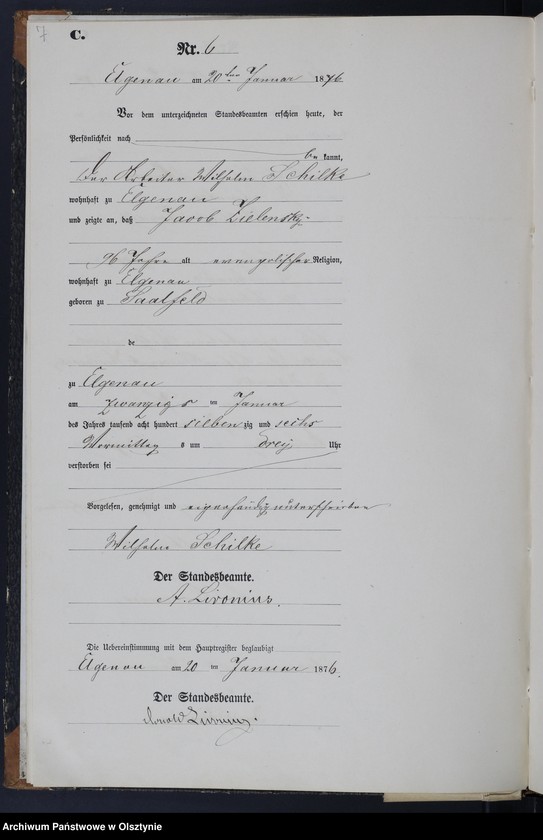 7
C.
Nr. 6
Elgenau am 20ten Januar 1876
Vor dem unterzeichneten Standesbeamten erschien heute, der
Persönlichkeit nach
be kannt,
der Arbeiter Wilhelm Schilke
wohnhaft zu Elgenau
und zeigte an, daß Jacob Zielensky
96 Jahre alt evangelischer Religion,
wohnhaft zu Elgenau
geboren zu Saalfeld
de
zu Elgenau
am zwanzig s ten Januar
des Jahres tausend acht hundert sieben zig und sechs
Vormittag s um drey Uhr
verstorben sei
Vorgelesen, genehmigt und eigenhändig unterschrieben
Wilhelm Schilke
Der Standesbeamte.
A. Livonius.
Die Uebereinstimmung mit dem Hauptregister beglaubigt
Elgenau am 20 ten Januar 1876.
Der Standesbeamte.
Livonius.
Archiwum Państwowe w Olsztynie